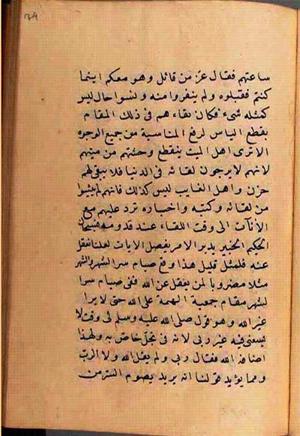 ساعتهم فقال عز من قائل وهو معكم اينما
كنتم فقبلوه ولم ينفروا منه وانسوا حال ليس
كمثله شيء فكان بقاءهم في ذلك المقام
بقطع الياس لرفع المناسبة من جميع الوجوه
الا ترى اهل الميت ينقطع وحشتهم من ميتهم
لانهم لا يرجون لقائه في الدنيا فلا يبقى لهم
حزن واهل الغايب ليس كذلك فانهم لم ييئسوا
من لقائه وكتبه واخباره ترد عليهم مع
الآنات الى وقت اللقاء عند قدومه فسبحان
الحكيم الخبير يدبر الامر يفصل الايات لعلنا نعقل
عنه فلمثل قليل هذا وقع صيام سرا الشهر والشهر
مثلا مضروبا لمن يعقل عن الله ففي صيام سرا
الشهر مقام جمعية الهمة على الله حتى لا يرا
غير الله وهو قول صلى الله عليه وسلم لي وقت لا
يسعني فيه غير ربي لانه في تجل خاص به ولهذا
اضافه الى الله فقال ربي ولم يقل الله ولا الرب
ومما يؤيد قولنا انه يريد بصوم السر من